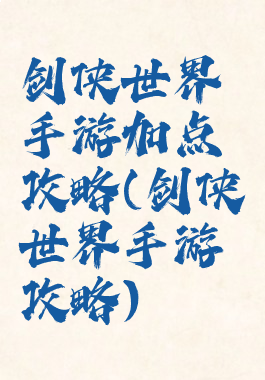 剑侠世界
手游加点
攻略(剑侠
世界手游
攻略)